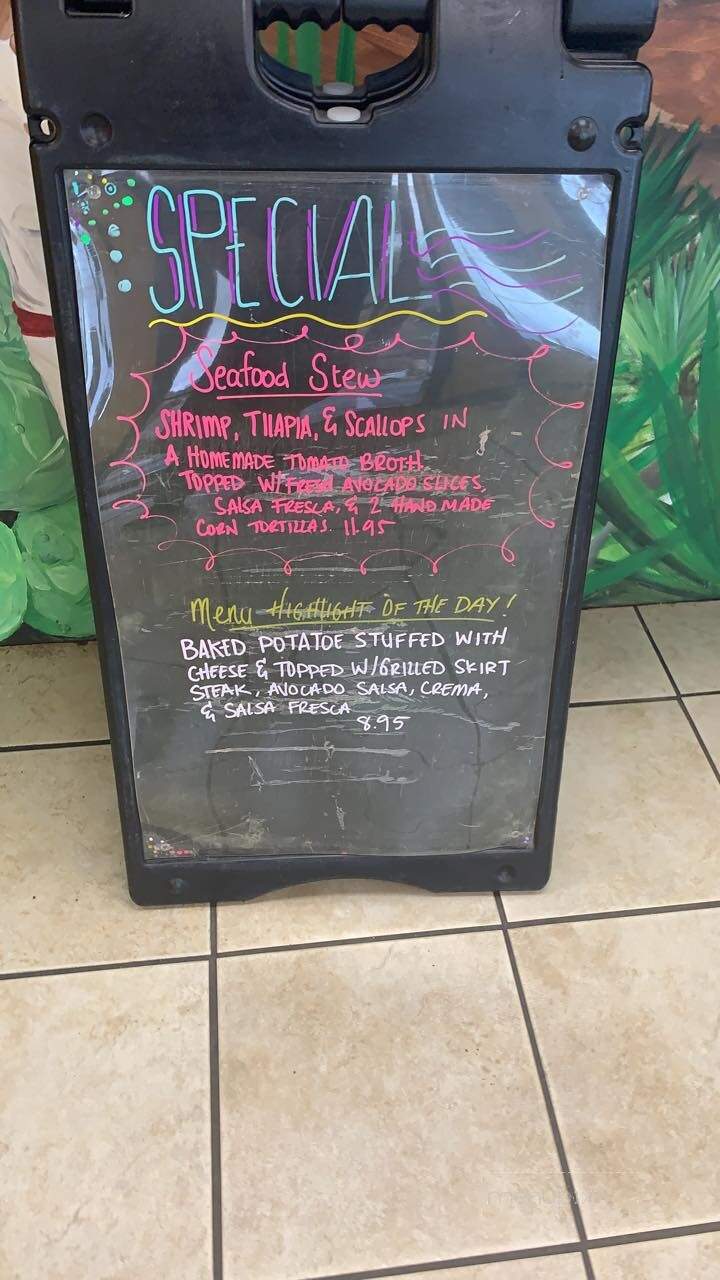 SPECIAL
Seafood Stew
SHRIMP, TILAPIA, & SCALLOPS IN
A HOMEMADE TOMATO BROTH.
TOPPED W/FRESH AVOCADO SLICES
SALSA FRESCA, & 2 HANDMADE
CORN TORTILLAS. 11.95
Menu HIGHLIGHT OF THE DAY!
BAKED POTATOE STUFFED WITH
CHEESE & TOPPED W/GRILLED SKIRT
STEAK, AVOCADO SALSA, CREMA,
& SALSA FRESCA
8.95